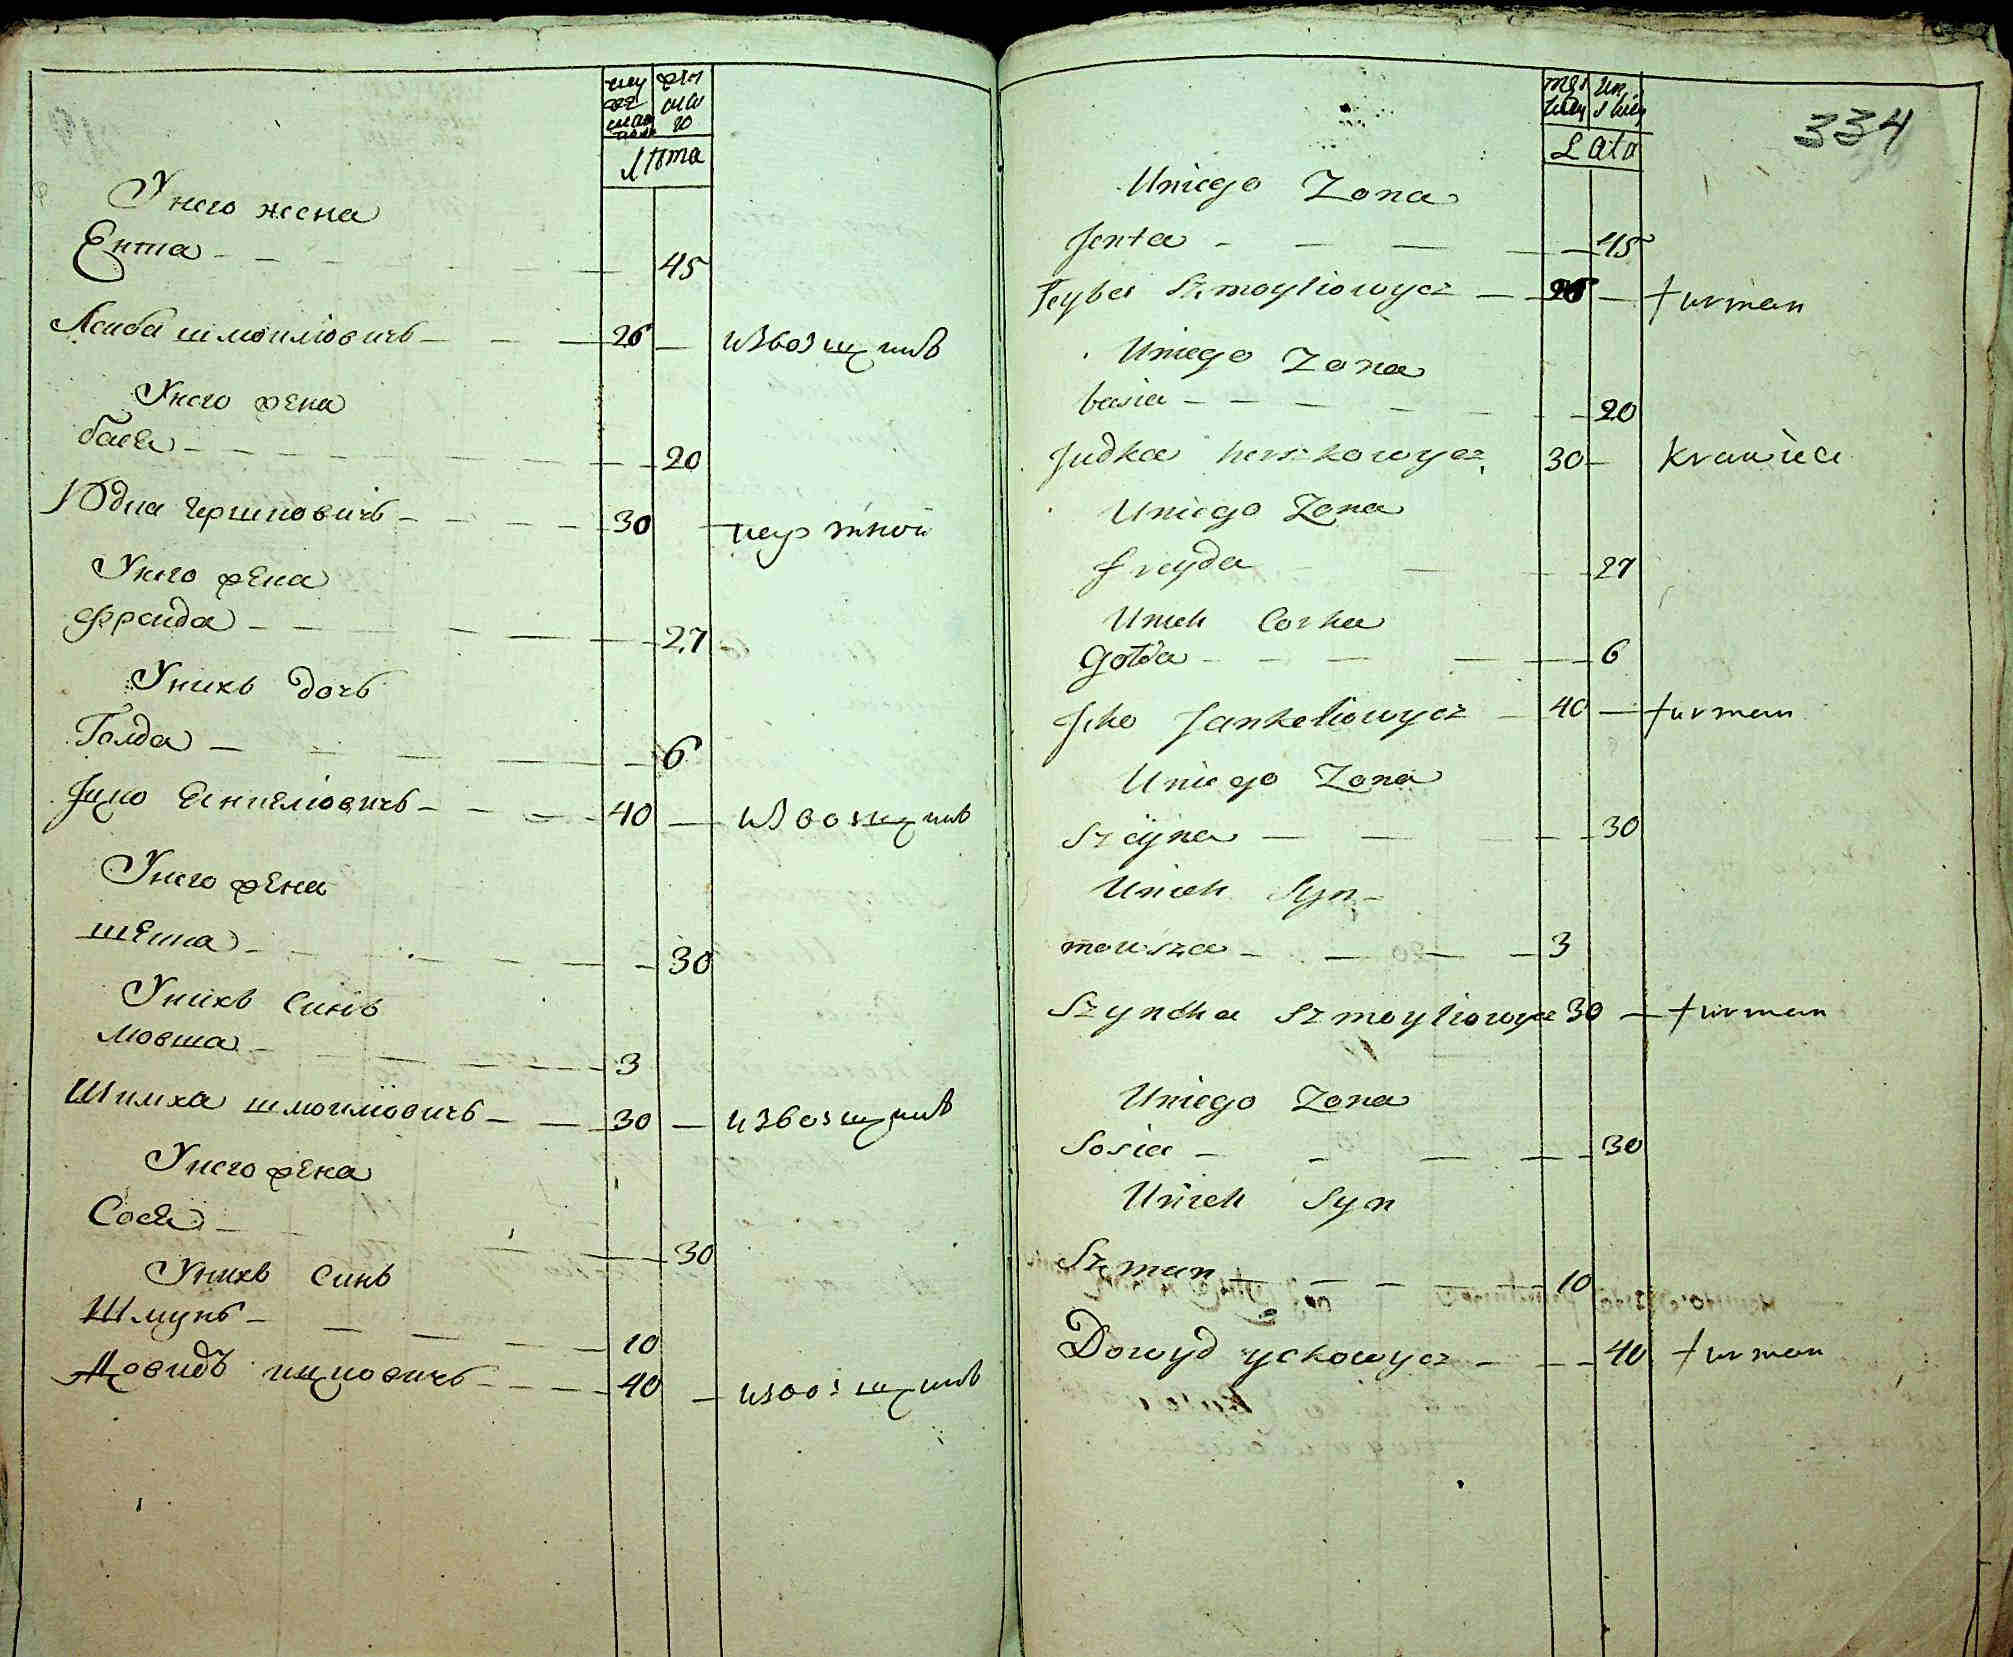 му
же
ска
Лѣта
Унего жена
Ента - - - 45
Леиба шмоиліовичь - - - 26 — извозщикъ
Унего жена
бася - - - 20
Юдка гершковичь - - - 30
Унего жена
Фреида - - - 27
Унихъ дочь
Голда - - - 6
Jцко Еснкеліовичь - - - 40 — извозщикъ
Унего жена
шеина - - - 30
Унихъ Синъ
Мовша - - - 3
Шимха шмоиліовичь - - - 30 — извозщикъ
Унего жена
Сося - - - 30
Унихъ Синъ
Шмунь - - - 10
Довидъ ицковичь - - - 40 — извозщикъ
334
Lata
Uniego Zona
Jenta - - - 45
Leyba Szmoyliowycz - 26 — furman
Uniego Zona
basia - - - 20
Judka herszkowycz 30 — krawiec
Uniego Zona
freyda - - - 27
Unich Corka
Golda - - - 6
Jcko Jankeliowycz - 40 — furman
Uniego Zona
Szeyna - - - 30
Unich Syn
mowsza - - - 3
Szymcha Szmoyliowycz 30 — furman
Uniego Zona
Sosia - - - 30
Unich Syn
Szmun - - - 10
Dowyd yckowycz - - - 40 furman